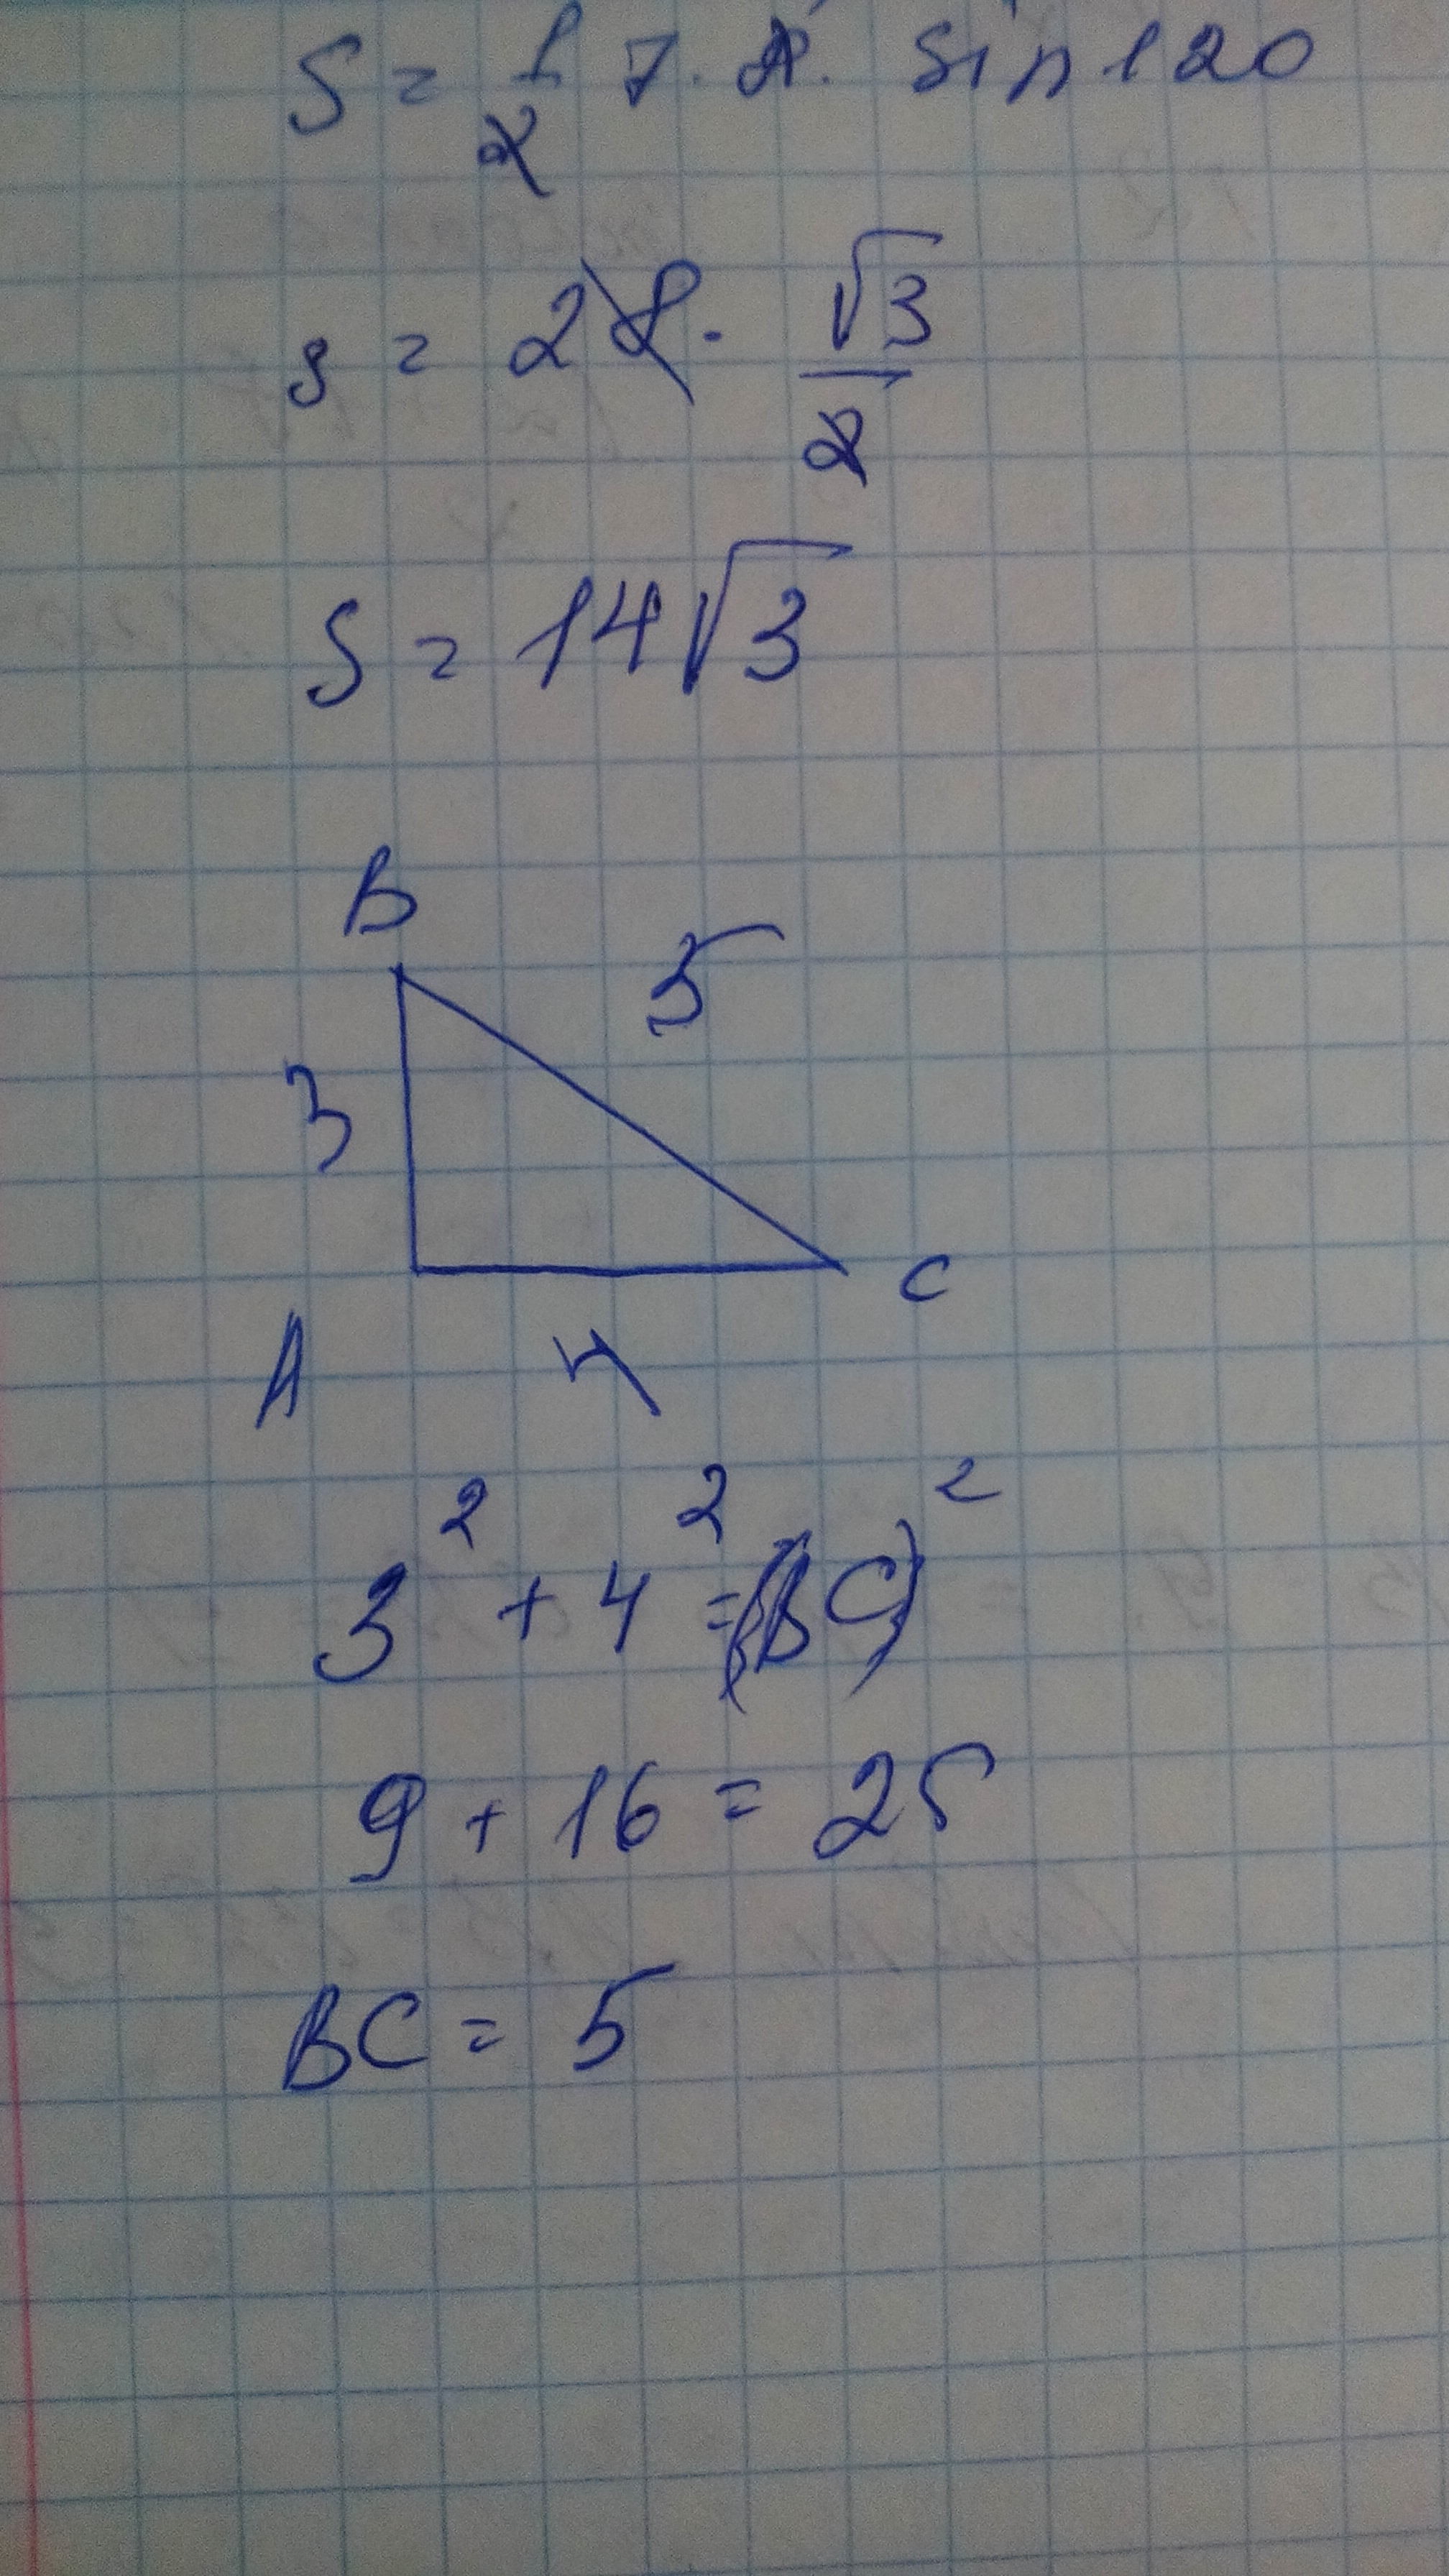 S = 1/2 7 · 8 · sin 120
S = 28 · √3/2
S = 14√3
B
5
3
C
A
4
3² + 4² = (BC)²
9 + 16 = 25
BC = 5